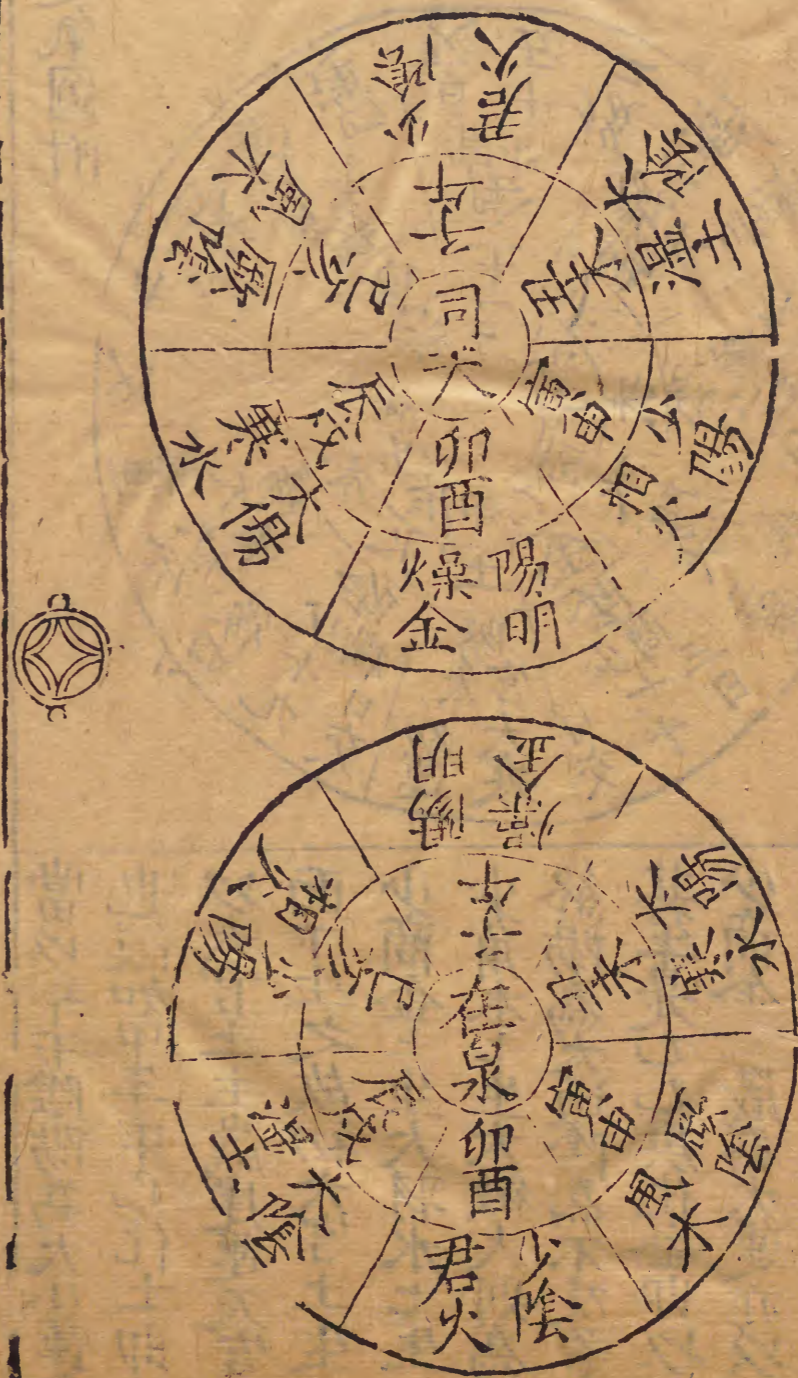 司天
子午
少陰
君火
丑未
大陰
湿土
寅申
少陽
相火
卯酉
陽明
燥金
辰戌
大陽
寒水
巳亥
厥陰
風木
在泉
子午
陽明
燥金
丑未
大陽
寒水
寅申
厥陰
風木
卯酉
少陰
君火
辰戌
大陰
湿土
巳亥
少陽
相火